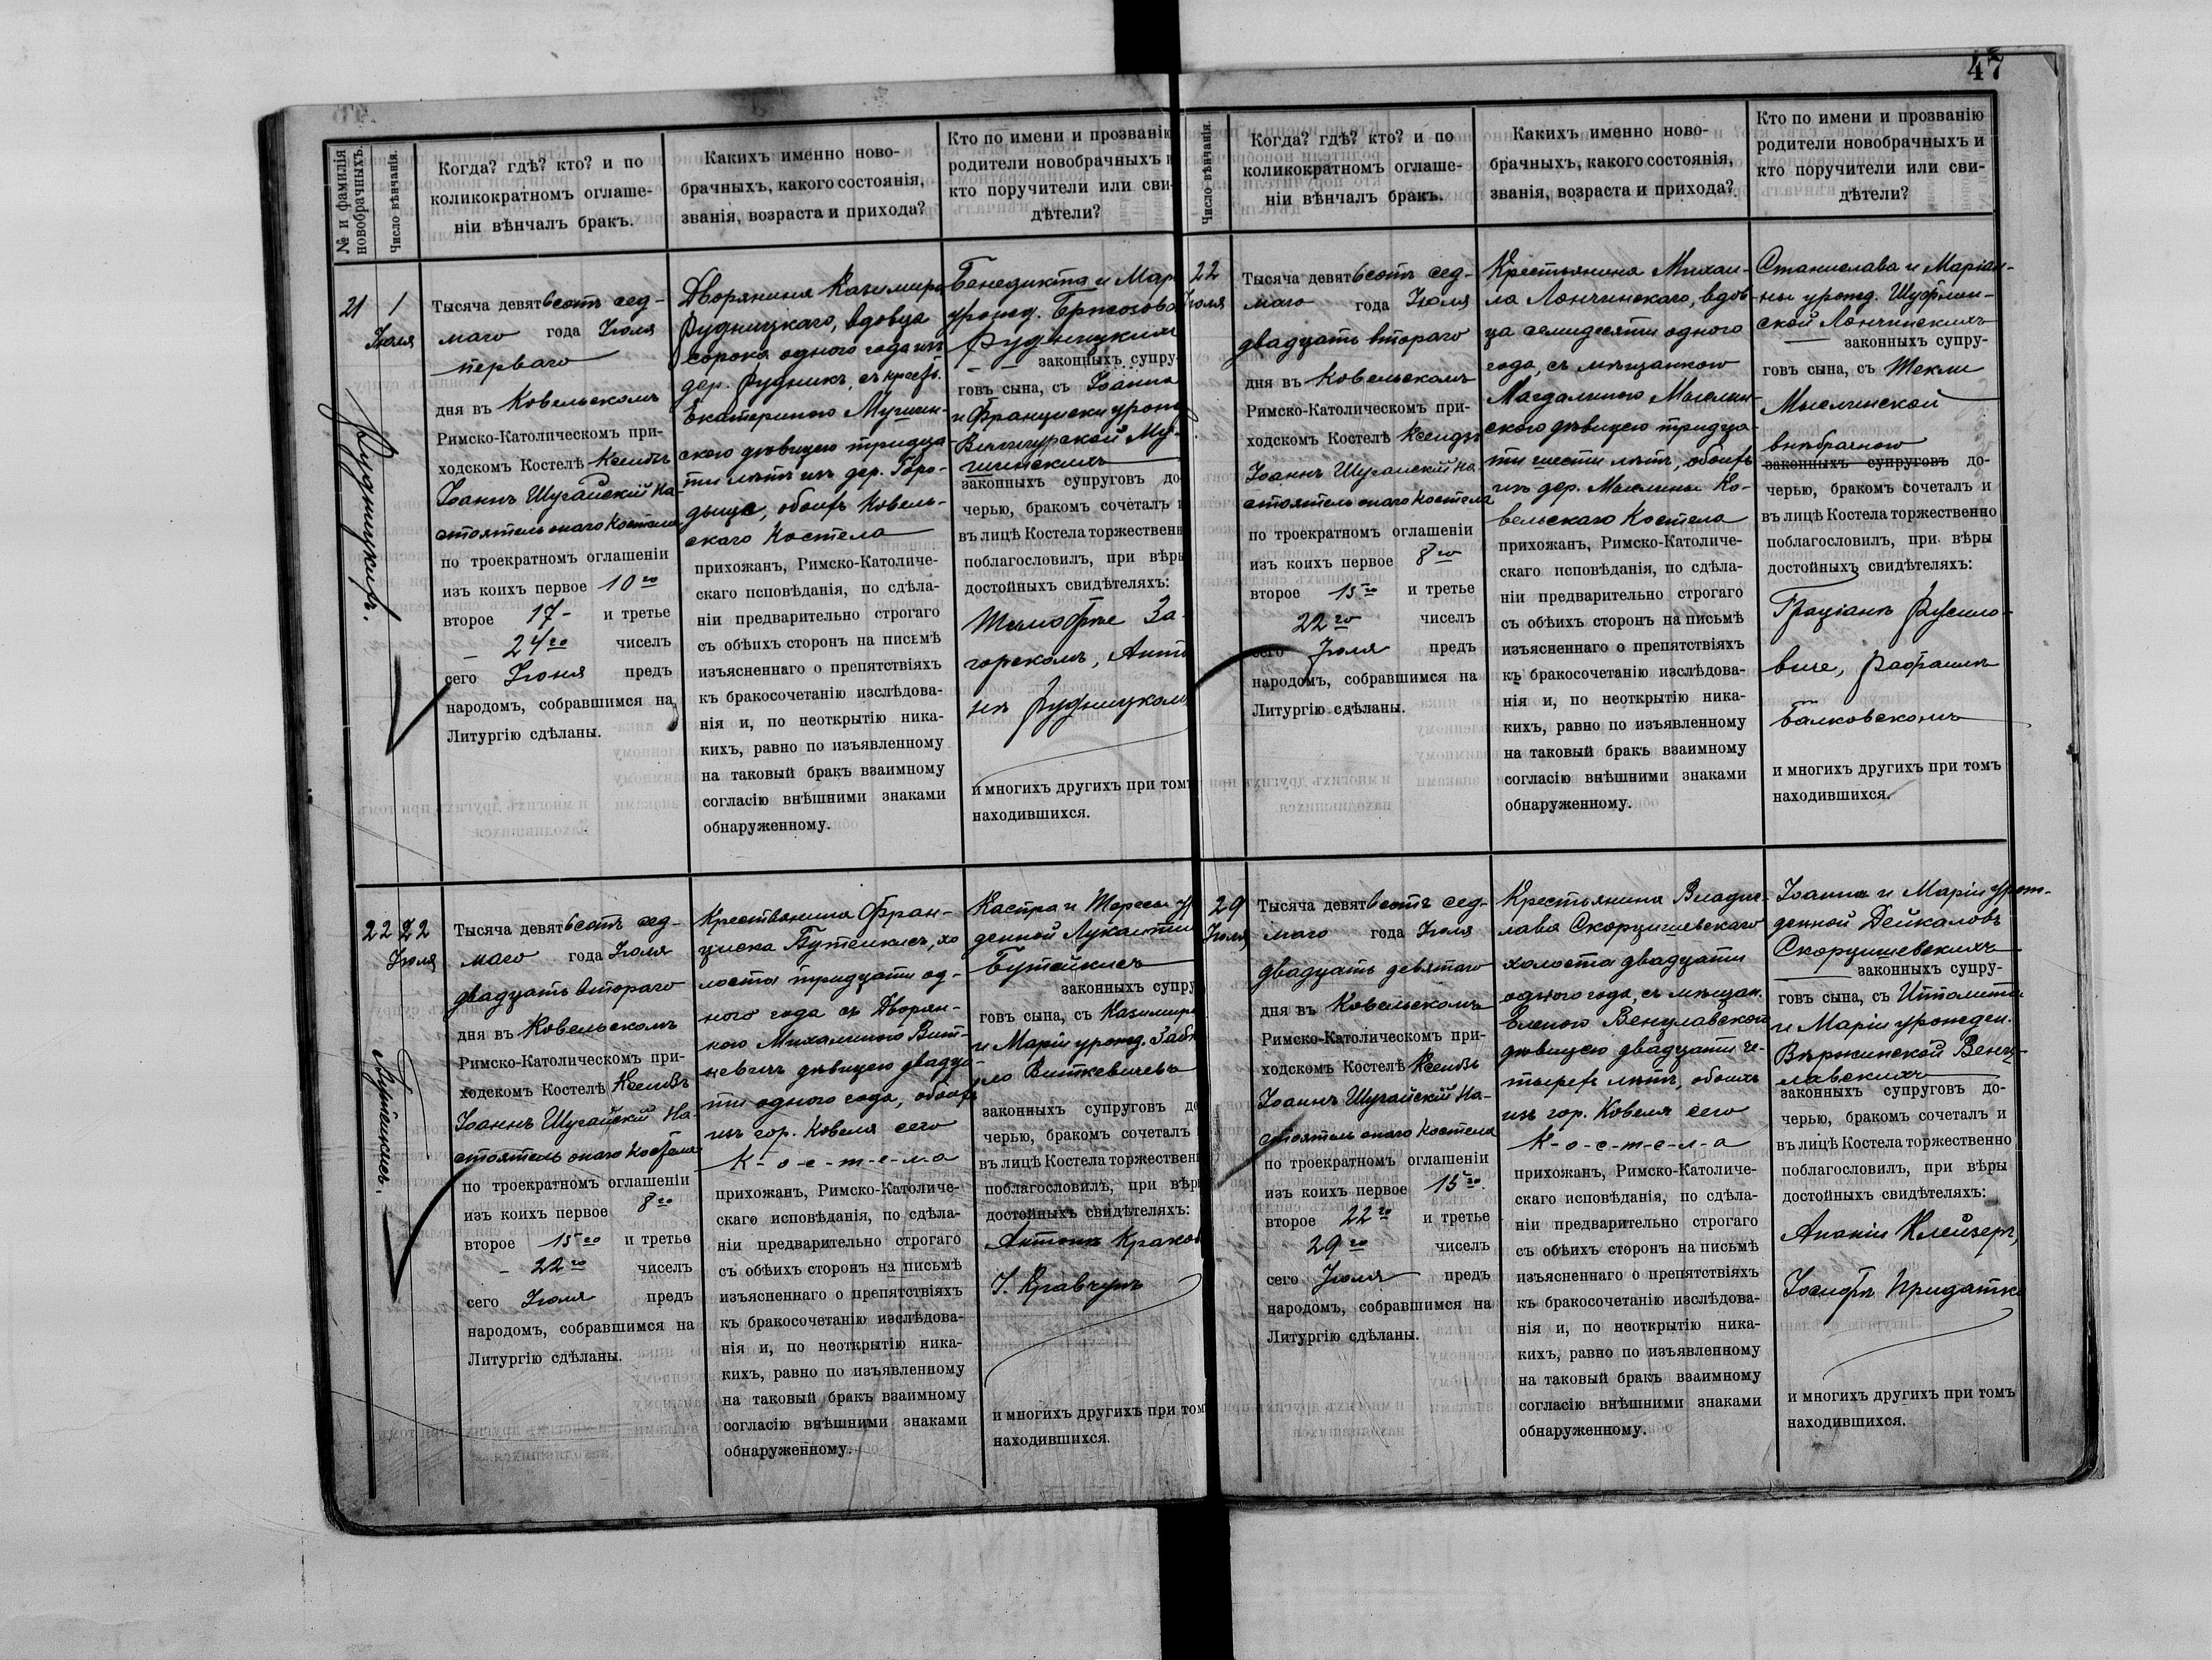 47
№ и фамилія новобрачныхъ.
Число вѣнчанія.
Когда? гдѣ? кто? и по
коликократномъ оглаше-
ніи вѣнчалъ бракъ.
Какихъ именно ново-
брачныхъ, какого состоянія,
званія, возраста и прихода?
Кто по имени и прозванію
родители новобрачныхъ и
кто поручители или сви-
дѣтели?
21
1
Іюля
Рудницкихъ.
Тысяча девятьсотъ сед-
маго года Іюля
перваго
дня въ Ковельскомъ
Римско-Католическомъ при-
ходскомъ Костелѣ Ксендзъ
Іоаннъ Шугайскій На-
стоятель онаго Костела
по троекратномъ оглашеніи
изъ коихъ первое 10го
второе 17- и третье
24го чиселъ
сего Іюня предъ
народомъ, собравшимся на
Литургію сдѣланы.
Дворянина Казимира
Рудницкаго, вдовца
сорока одного года изъ
дер. Рудникъ, съ крест.
Екатериною
скою дѣвицею тридца-
ти лѣтъ изъ дер. Горо-
дыще, обоихъ Ковель-
скаго Костела
прихожанъ, Римско-Католиче-
скаго исповѣданія, по сдѣла-
ніи предварительно строгаго
съ обѣихъ сторонъ на письмѣ
изъясненнаго о препятствіяхъ
къ бракосочетанію изслѣдова-
нія и, по неоткрытію ника-
кихъ, равно по изъявленному
на таковый бракъ взаимному
согласію внѣшними знаками
обнаруженному.
Бенедикта и Мар
урожд.
Рудницких
законныхъ супру-
говъ сына, съ Іоанна
и Франциски урож
законныхъ супруговъ до
черью, бракомъ сочеталъ
въ лицѣ Костела торжествен
поблагословилъ, при вѣры
достойныхъ свидѣтеляхъ:
Тимофѣе За-
горскомъ, Анто
нѣ Рудницкомъ
и многихъ другихъ при томъ
находившихся.
22
22
Іюля
Бутейкисъ.
Тысяча девятьсотъ сед-
маго года Іюля
двадцать втораго
дня въ Ковельскомъ
Римско-Католическомъ при-
ходскомъ Костелѣ Ксендзъ
Іоаннъ Шугайскій На-
стоятель онаго Костела
по троекратномъ оглашеніи
изъ коихъ первое 8го
второе 15го и третье
22го чиселъ
сего Іюля предъ
народомъ, собравшимся на
Литургію сдѣланы.
Крестьянина Фран-
циска Бутейкисъ, хо
лоста тридцати од-
ного года съ Дворян-
кою Михалиною Вит-
кевичъ дѣвицею двадца-
ти одного года, обоихъ
изъ гор. Ковеля сего
К-о-с-т-е-л-а
прихожанъ, Римско-Католиче-
скаго исповѣданія, по сдѣла-
ніи предварительно строгаго
съ обѣихъ сторонъ на письмѣ
изъясненнаго о препятствіяхъ
къ бракосочетанію изслѣдова-
нія и, по неоткрытію ника-
кихъ, равно по изъявленному
на таковый бракъ взаимному
согласію внѣшними знаками
обнаруженному.
Каспра и Тересы ур
денной
Бутейкисъ
законныхъ супру
говъ сына, съ Казимира
и Маріи урожд.
Виткевичевъ
законныхъ супруговъ до
черью, бракомъ сочеталъ
въ лицѣ Костела торжествен
поблагословилъ, при вѣр
достойныхъ свидѣтеляхъ:
Антонѣ
І. Кравчукъ
и многихъ другихъ при том
находившихся.
Число вѣнчанія.
Когда? гдѣ? кто? и по
коликократномъ оглаше-
ніи вѣнчалъ бракъ.
Какихъ именно ново-
брачныхъ, какого состоянія,
званія, возраста и прихода?
Кто по имени и прозванію
родители новобрачныхъ и
кто поручители или сви-
дѣтели?
22
Іюля
Тысяча девятьсотъ сед-
маго года Іюля
двадцать втораго
дня въ Ковельскомъ
Римско-Католическомъ при-
ходскомъ Костелѣ Ксендзъ
Іоаннъ Шугайскій На-
стоятель онаго Костела
по троекратномъ оглашеніи
изъ коихъ первое 8го
второе 15го и третье
22го чиселъ
сего Іюля предъ
народомъ, собравшимся на
Литургію сдѣланы.
Крестьянина Михаи-
ла Лончинскаго, вдов
ца семидесяти одного
года, съ мѣщанкою
Магдалиною Мыслин-
скою дѣвицею тридца-
ти шести лѣтъ, обоихъ
изъ дер. Мыслины Ко-
вельскаго Костела
прихожанъ, Римско-Католиче-
скаго исповѣданія, по сдѣла-
ніи предварительно строгаго
съ обѣихъ сторонъ на письмѣ
изъясненнаго о препятствіяхъ
къ бракосочетанію изслѣдова-
нія и, по неоткрытію ника-
кихъ, равно по изъявленному
на таковый бракъ взаимному
согласію внѣшними знаками
обнаруженному.
Станислава и Маріан-
ны урожд.
ской Лончинскихъ
законныхъ супру-
говъ сына, съ Текли
Мыслинской
внѣбрачною
законныхъ супруговъ до-
черью, бракомъ сочеталъ и
въ лицѣ Костела торжественно
поблагословилъ, при вѣры
достойныхъ свидѣтеляхъ:
Граціанѣ Русило-
виче, Рафаилѣ
Балковскомъ
и многихъ другихъ при томъ
находившихся.
29
Іюля
Тысяча девятьсотъ сед-
маго года Іюля
двадцать девятаго
дня въ Ковельскомъ
Римско-Католическомъ при-
ходскомъ Костелѣ Ксендзъ
Іоаннъ Шугайскій На-
стоятель онаго Костела
по троекратномъ оглашеніи
изъ коихъ первое 15го
второе 22го и третье
29го чиселъ
сего Іюля предъ
народомъ, собравшимся на
Литургію сдѣланы.
Крестьянина Владис-
лава Скорупшевскаго
холоста двадцати
одного года, съ мѣщан.
Еленою Венцлавской
дѣвицею двадцати че-
тырехъ лѣтъ, обоихъ
изъ гор. Ковеля сего
К-о-с-т-е-л-а
прихожанъ, Римско-Католиче-
скаго исповѣданія, по сдѣла-
ніи предварительно строгаго
съ обѣихъ сторонъ на письмѣ
изъясненнаго о препятствіяхъ
къ бракосочетанію изслѣдова-
нія и, по неоткрытію ника-
кихъ, равно по изъявленному
на таковый бракъ взаимному
согласію внѣшними знаками
обнаруженному.
Іоанна и Маріи урож-
денной Дейкаловъ
Скорупшевскихъ
законныхъ супру-
говъ сына, съ Ипполита
и Маріи урожден.
Вержинской Венц-
лавскихъ
законныхъ супруговъ до-
черью, бракомъ сочеталъ и
въ лицѣ Костела торжественно
поблагословилъ, при вѣры
достойныхъ свидѣтеляхъ:
Ананіи Клейзеръ,
Іосифѣ Придатко
и многихъ другихъ при томъ
находившихся.